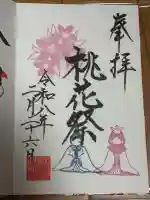 奉拝
桃花祭
令和八年
二月二十六日